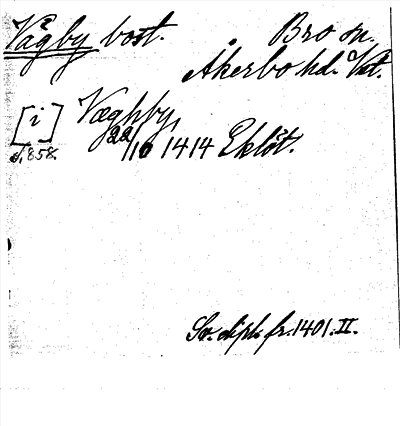 Vågby bost. Bro sn.
Åkerbo hd. Vstm.
[i] Væghby,
s. 858. 22/10 1414 Eklöt.
Sv. dipl. fr. 1401. II.